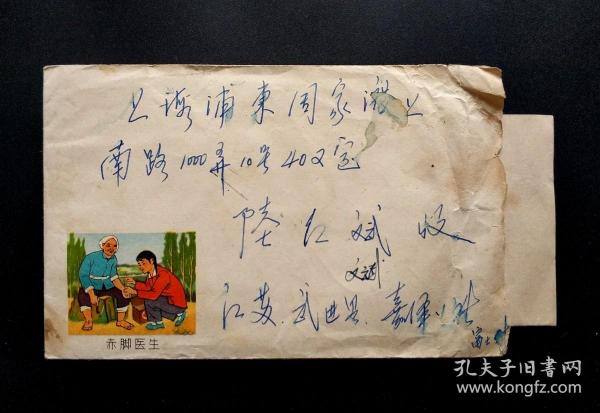 上海浦东周家渡上
南路1000弄10号402室
陆红斌收
文斌
江苏.武进县.嘉泽
赤脚医生
孔夫子旧书网
www.kongfz.com